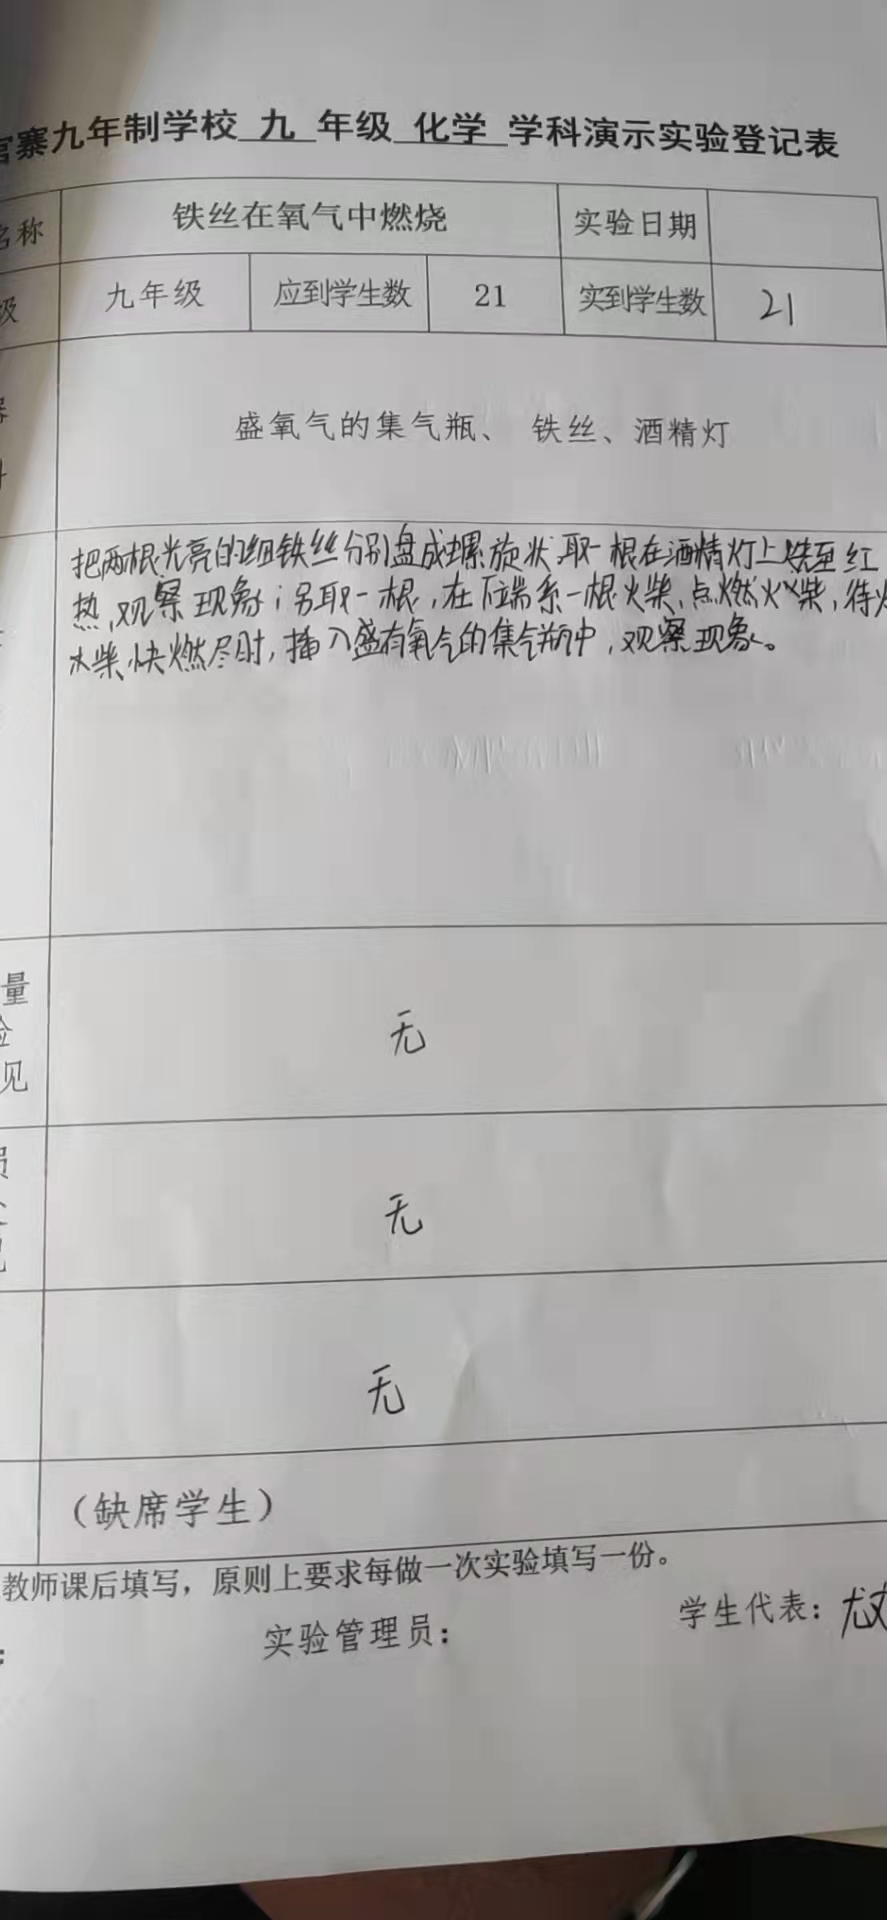 官寨九年制学校 九 年级 化学 学科演示实验登记表
名称 铁丝在氧气中燃烧 实验日期
级 九年级 应到学生数 21 实到学生数 21
盛氧气的集气瓶、 铁丝、酒精灯
把两根光亮的细铁丝分别盘成螺旋状取一根在酒精灯上烧至红
热,观察现象;另取一根,在下端系一根火柴,点燃火柴,待火
火柴快燃尽时,插入盛有氧气的集气瓶中,观察现象。
量
见
无
无
无
(缺席学生)
教师课后填写,原则上要求每做一次实验填写一份。
实验管理员: 学生代表: